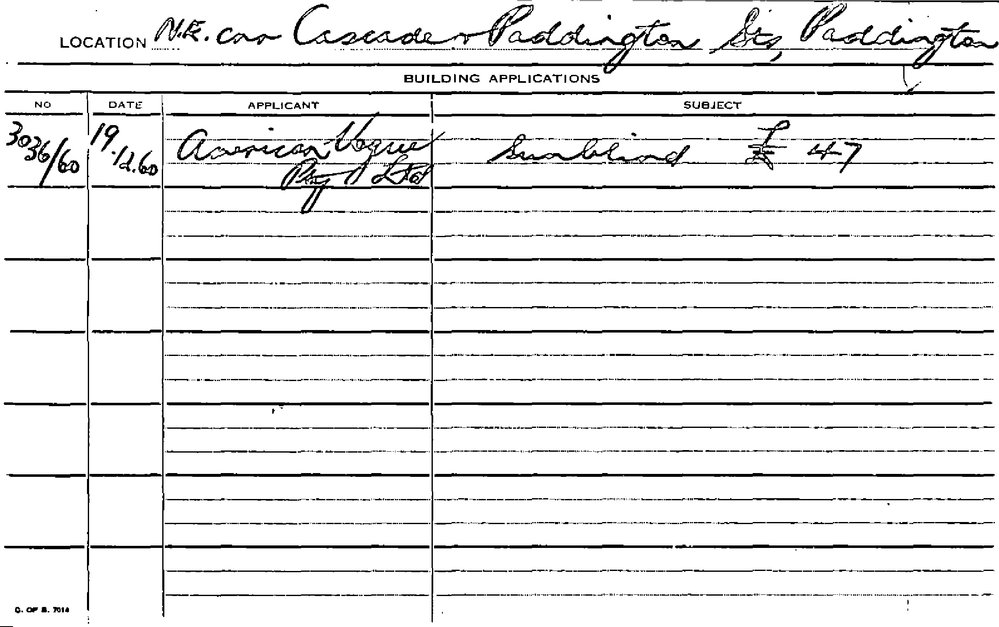 LOCATION N.E. cor Cascade & Paddington Sts, Paddington
BUILDING APPLICATIONS
NO DATE APPLICANT SUBJECT
3036/60 19.12.60 American Vogue Sunblind £ 47
Pty Ltd
C. OF S. 7014